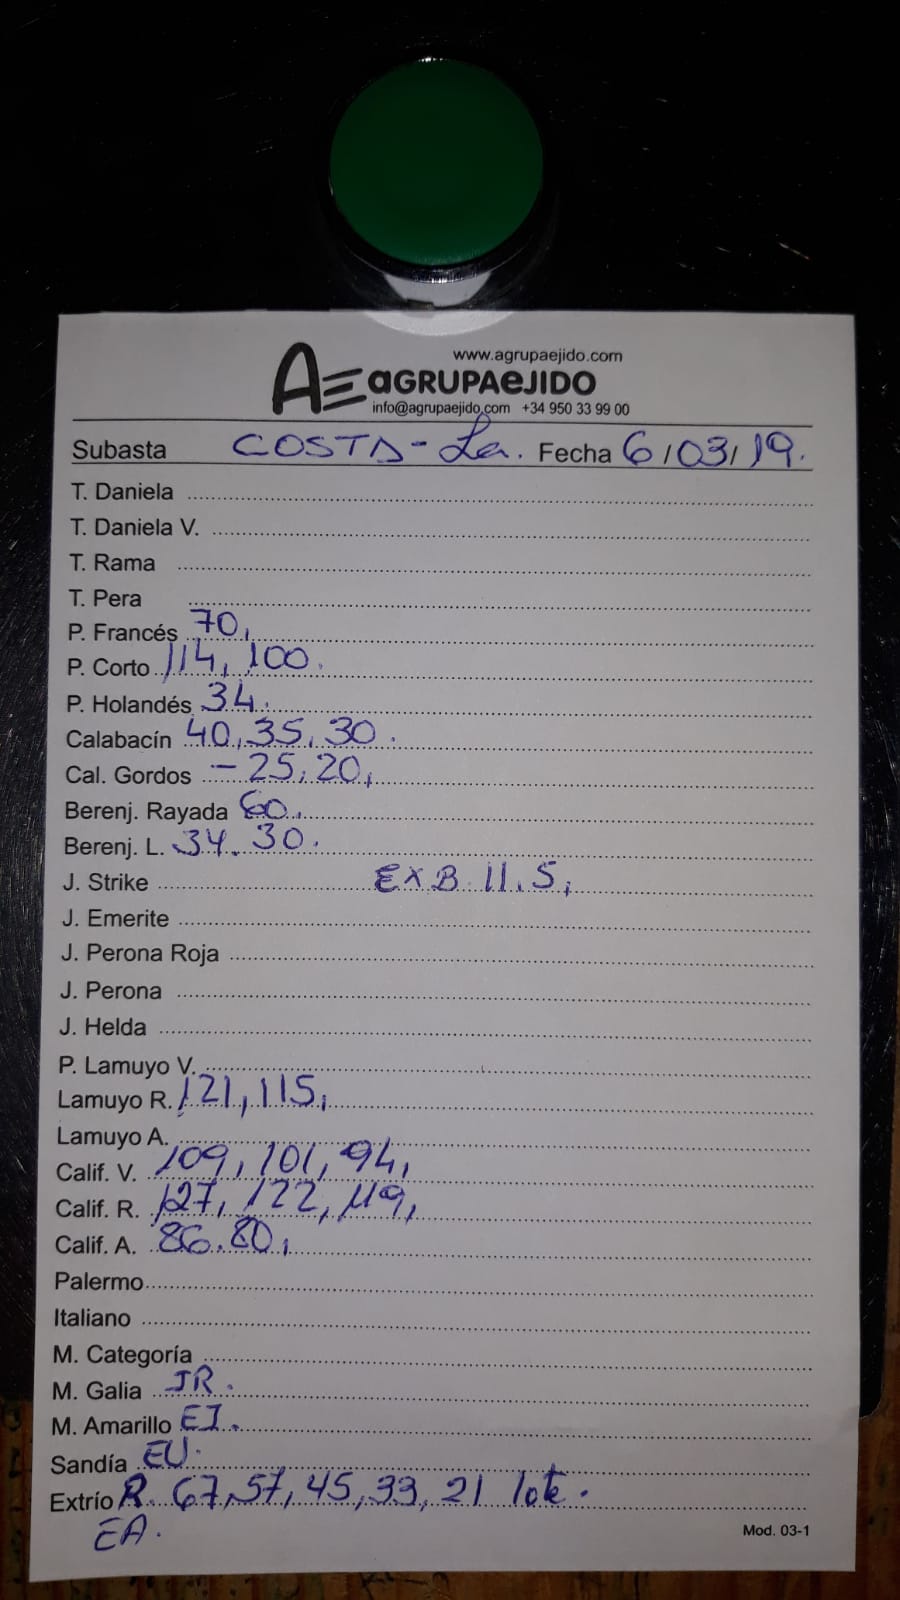 www.agrupaejido.com
AE aGRUPAeJIDO
info@agrupaejido.com +34 950 33 99 00
Subasta COSTA - La. Fecha 6/03/19.
T. Daniela
T. Daniela V.
T. Rama
T. Pera
P. Francés 70,
P. Corto 114, 100.
P. Holandés 34.
Calabacín 40, 35, 30.
Cal. Gordos - 25, 20,
Berenj. Rayada 60.
Berenj. L. 34. 30.
J. Strike EXB 11.5,
J. Emerite
J. Perona Roja
J. Perona
J. Helda
P. Lamuyo V.
Lamuyo R. 121, 115,
Lamuyo A.
Calif. V. 109, 101, 94,
Calif. R. 127, 122, 119,
Calif. A. 86. 80,
Palermo
Italiano
M. Categoría
M. Galia IR.
M. Amarillo EI.
Sandía EU.
Extrío R. 67, 57, 45, 33, 21 lote.
EA.
Mod. 03-1